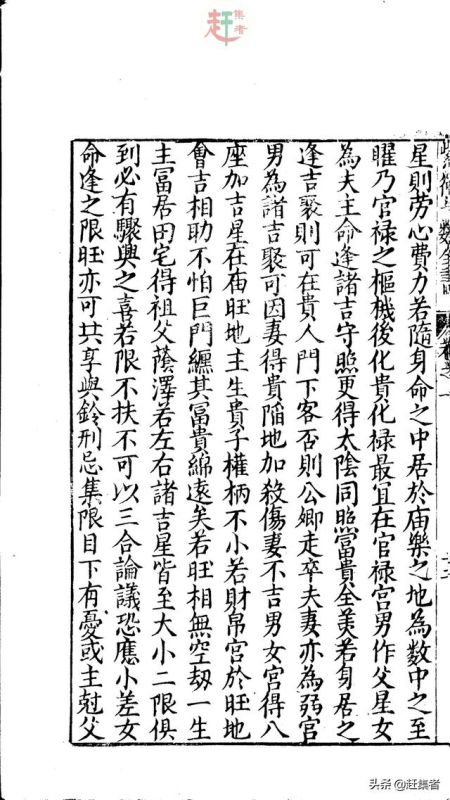 集者
赶
星則劳心費力若隨身命之中居於庙樂之地為数中之至
曜乃官禄之樞機後化貴化禄最宜在官禄宮男作父星女
為夫主命逢諸吉守照更得太陰同照富貴全美若身居之
逢吉聚則可在貴人門下客否則公卿走卒夫妻亦為弱宮
男為諸吉聚可因妻得貴陥地加殺傷妻不吉男女宮得八
座加吉星在庙旺地主生貴子權柄不小若財帛宮於旺地
會吉相助不怕巨門纏其富貴綿遠矣若旺相無空刼一生
主冨居田宅得祖父蔭澤若左右諸吉星皆至大小二限俱
到必有驟興之喜若限不扶不可以三合論議恐應小差女
命逢之限旺亦可共享與鈴刑忌集限目下有憂或主尅父
头条 @赶集者